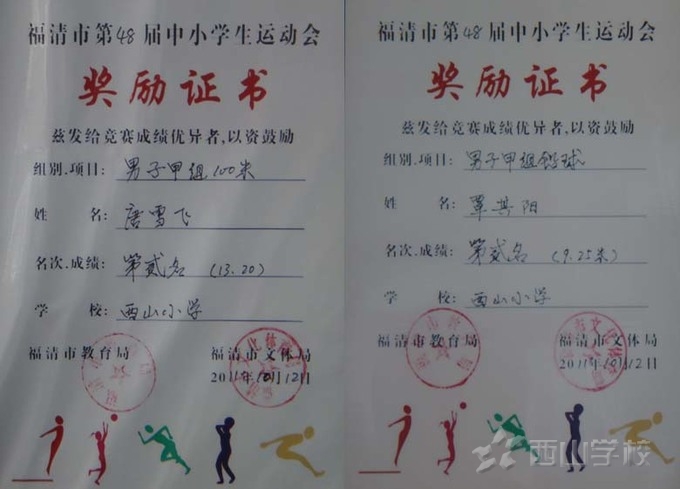 福清市第48届中小学生运动会
奖励证书
兹发给竞赛成绩优异者,以资鼓励
组别.项目: 男子甲组100米
姓 名: 唐雪飞
名次.成绩: 第贰名 (13.20)
学 校: 西山小学
福清市教育局 福清市文体局
2011年10月12日
福清市第48届中小学生运动会
奖励证书
兹发给竞赛成绩优异者,以资鼓励
组别.项目: 男子甲组铅球
姓 名: 覃其阳
名次.成绩: 第贰名 (9.25米)
学 校: 西山小学
福清市教育局 福清市文体局
2011年10月12日
西山学校